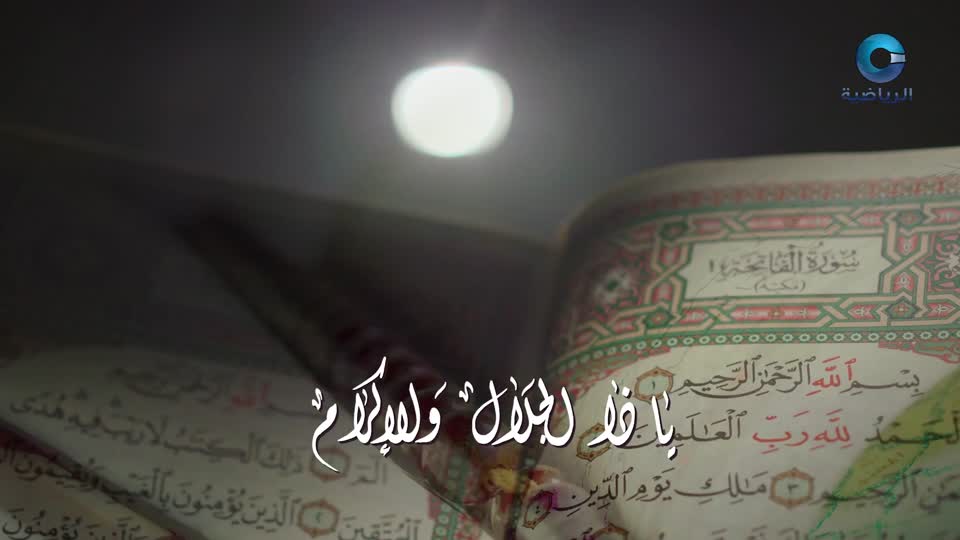 الرياضية
سُورَةُ الْفَاتِحَةِ ١
(مكية)
بِسْمِ اللَّهِ الرَّحْمَٰنِ الرَّحِيمِ ١
الْحَمْدُ لِلَّهِ رَبِّ الْعَالَمِينَ
الرَّحِيمِ ٣ مَالِكِ يَوْمِ الدِّينِ
يا ذا الجلال والإكرام
الم ذَلِكَ الْكِتَابُ لَا رَيْبَ فِيهِ هُدًى
الْمُتَّقِينَ ٢ الَّذِينَ يُؤْمِنُونَ بِالْغَيْبِ وَيُقِيمُونَ